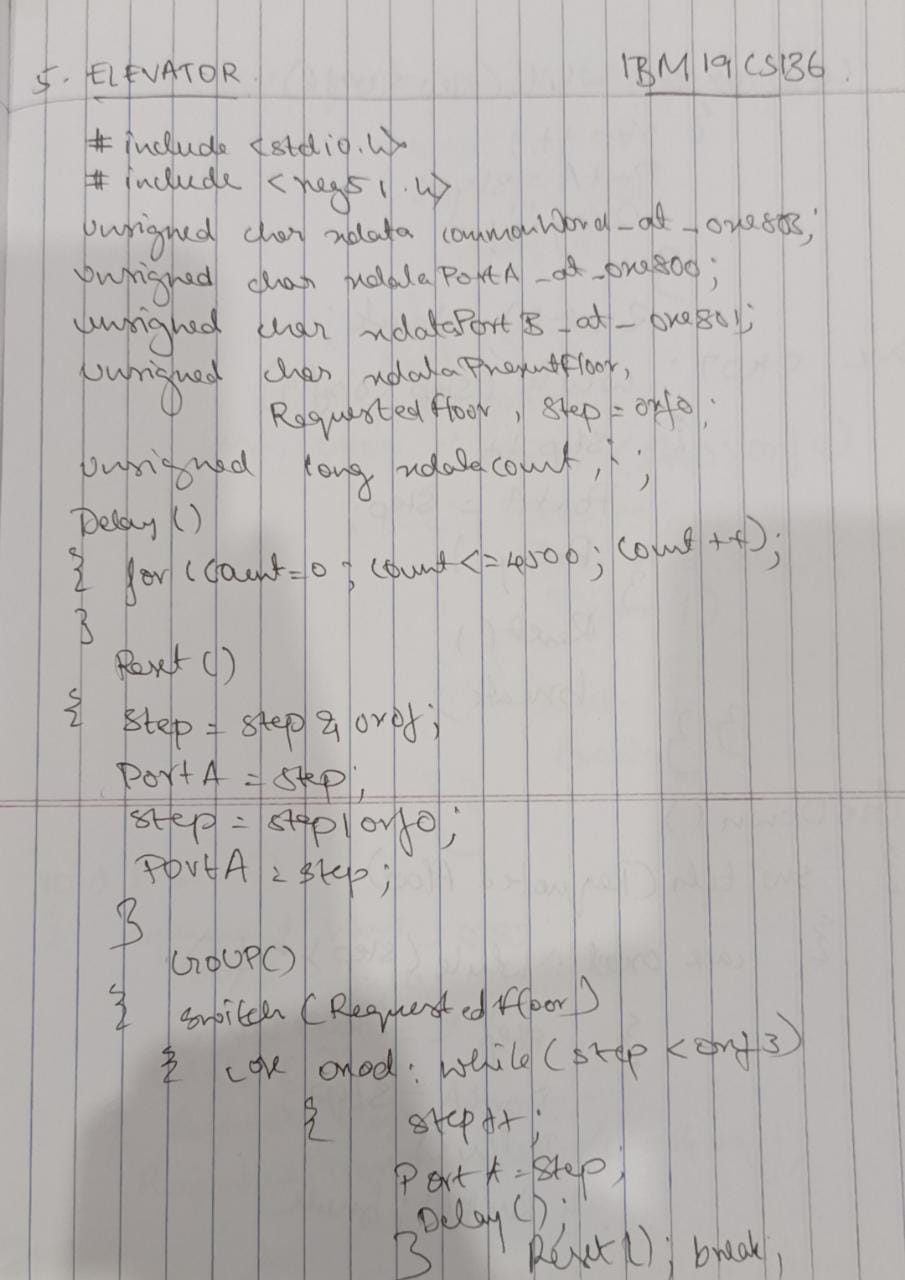 5. ELEVATOR 1BM19CS136
# include <stdio.h>
# include <reg51.h>
unsigned char xdata commonWord_at_0xe803;
unsigned char xdata PortA_at_0xe800;
unsigned char xdata Port B_at_0xe801;
unsigned char xdata Presentfloor,
Requested floor, step = 0xf0;
unsigned long xdata count, i;
Delay ()
{ for (count=0; count<=4500; count ++);
}
Reset ()
{ step = step & 0x0f;
Port A = step;
step = step | 0xf0;
PortA = step;
}
GOUP()
{ switch (Requested floor)
{ case 0x0d: while (step < 0xf3)
{ step ++;
Port A = step;
Delay ();
} Reset (); break;